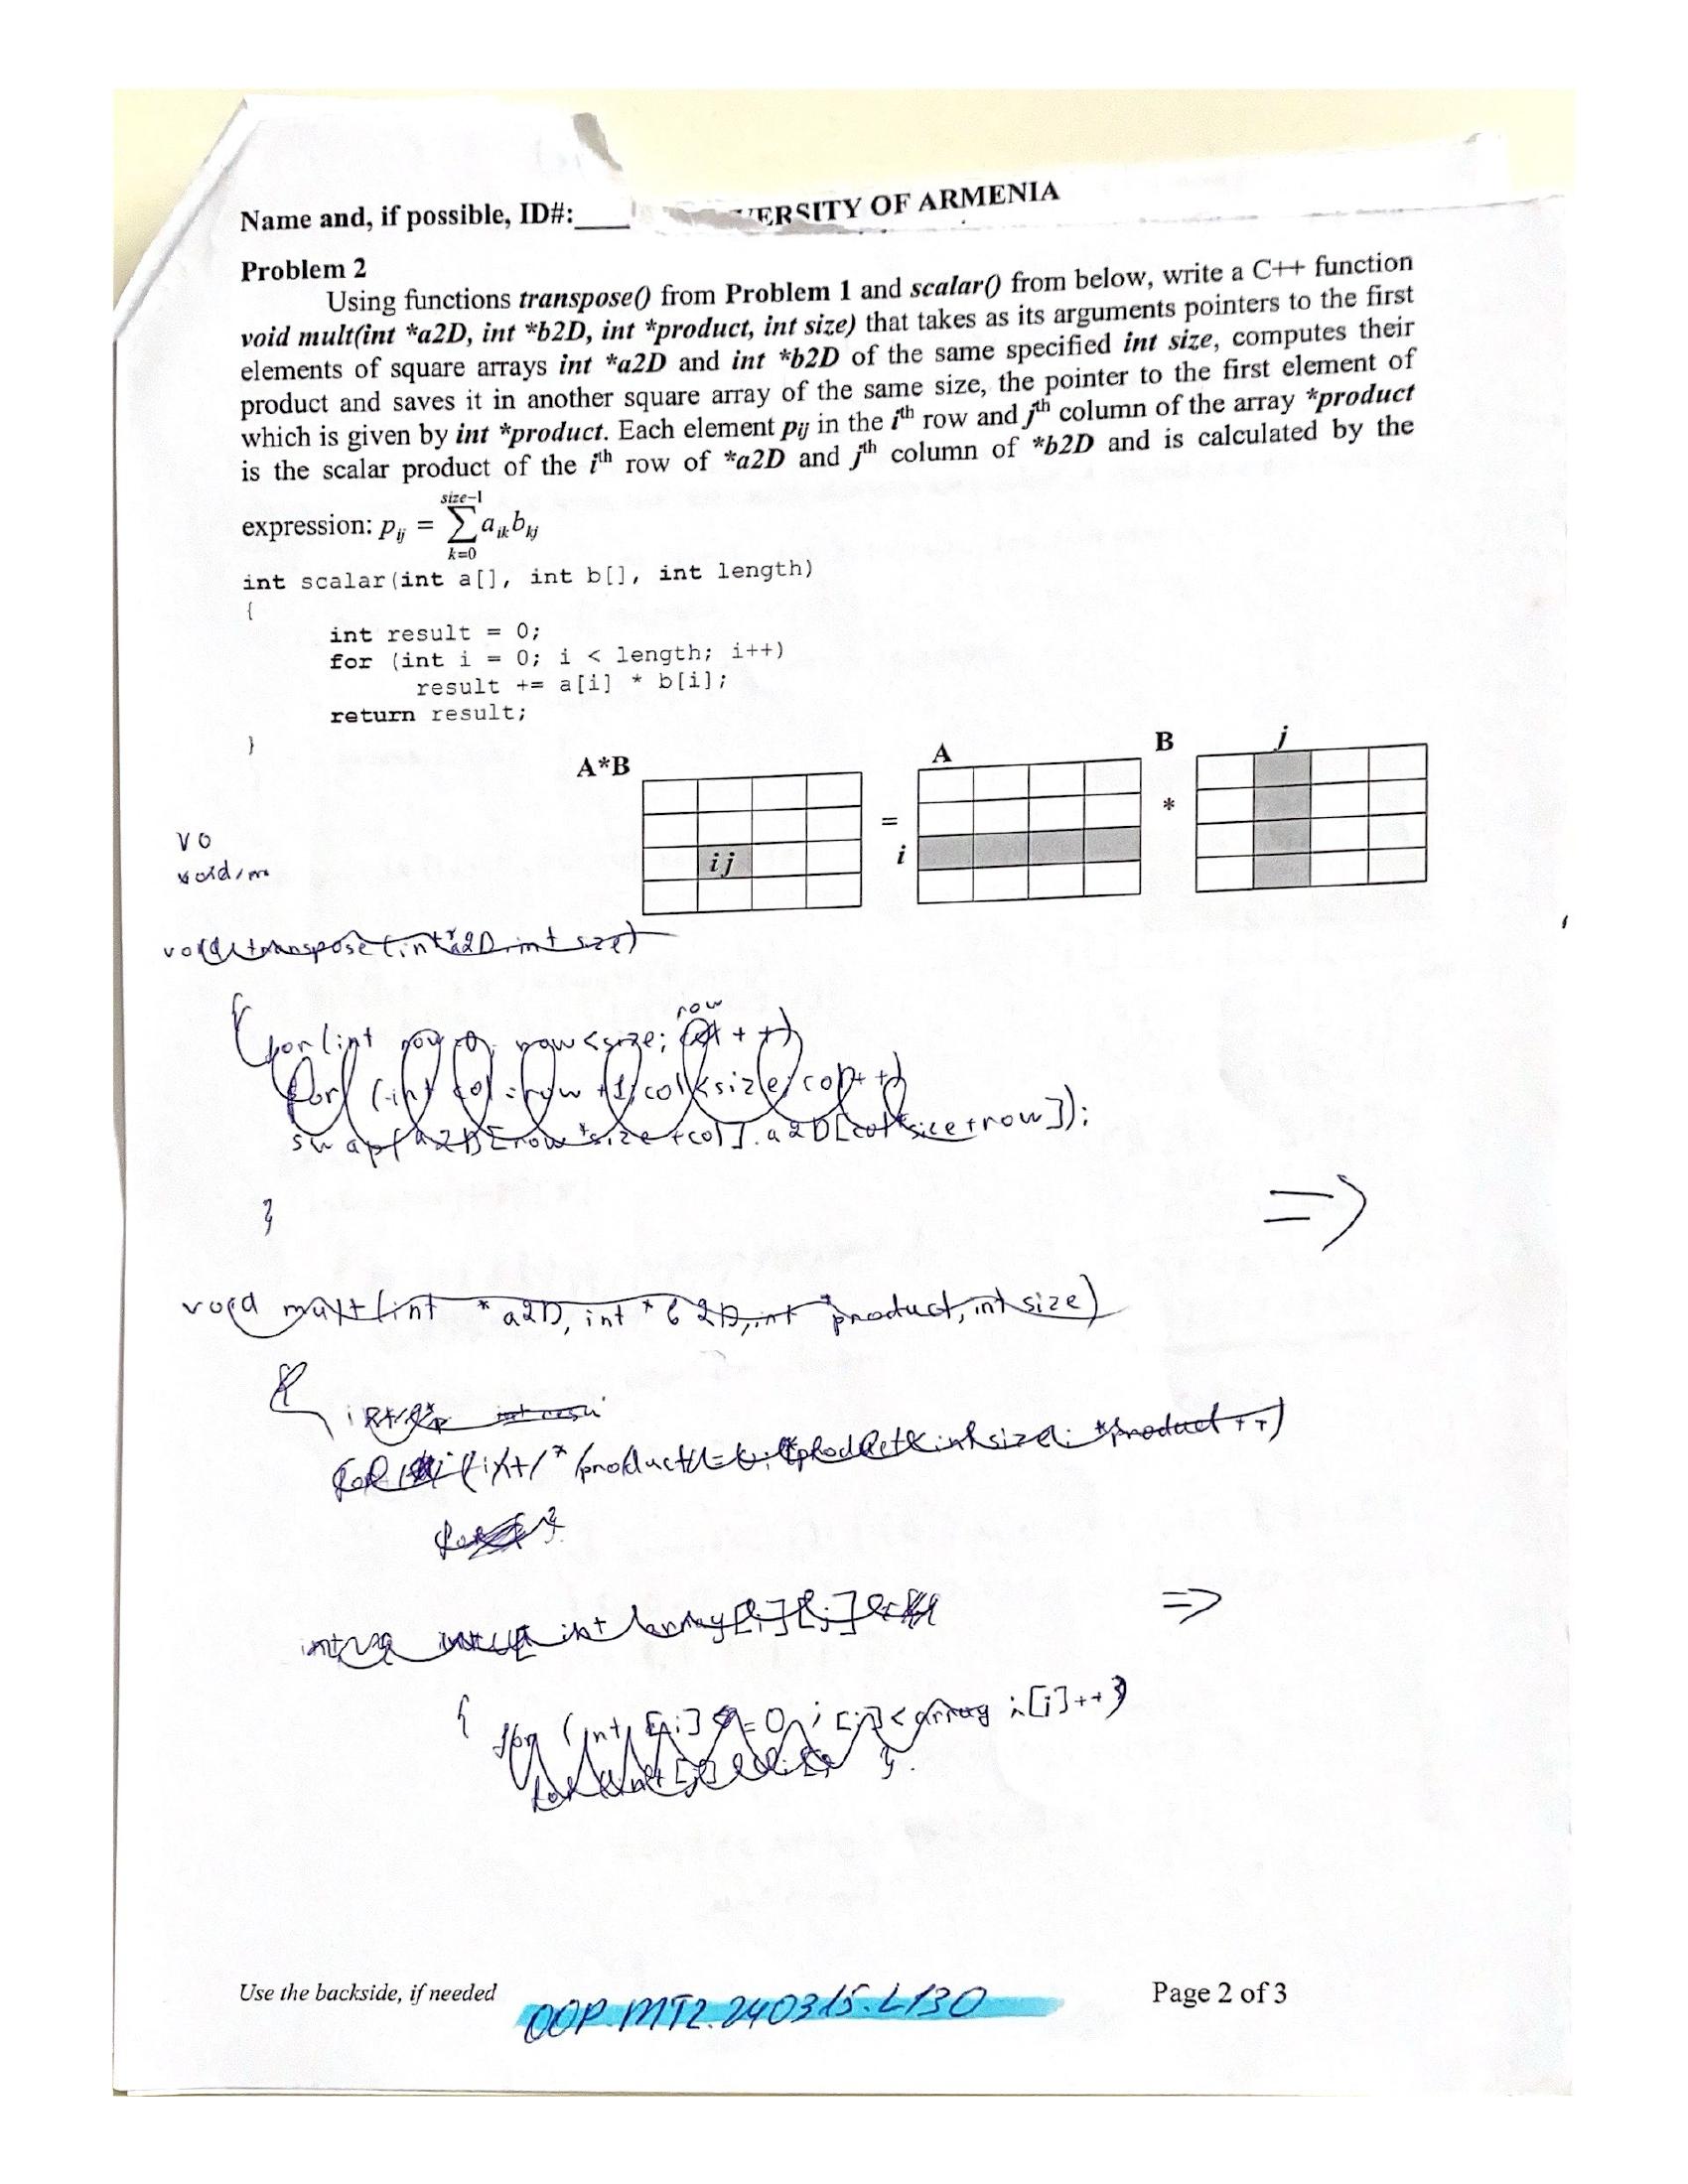 Name and, if possible, ID#:____ VERSITY OF ARMENIA
Problem 2
Using functions transpose() from Problem 1 and scalar() from below, write a C++ function
void mult(int *a2D, int *b2D, int *product, int size) that takes as its arguments pointers to the first
elements of square arrays int *a2D and int *b2D of the same specified int size, computes their
product and saves it in another square array of the same size, the pointer to the first element of
which is given by int *product. Each element pij in the ith row and jth column of the array *product
is the scalar product of the ith row of *a2D and jth column of *b2D and is calculated by the
size-1
expression: pij = ∑ aik bkj
k=0
int scalar(int a[], int b[], int length)
{
int result = 0;
for (int i = 0; i < length; i++)
result += a[i] * b[i];
return result;
}
A*B = A * B
j
i
ij
vo
void m
void transpose (int *a2D, int size)
{
row
for (int row = 0; row < size; ++)
for (int col = row + 1; col < size; col++)
swap(a2D[row*size+col], a2D[col*size+row]);
}
=>
void mult (int *a2D, int *b2D, int *product, int size)
{
*product++)
int array[i][j]
=>
{ for (int [i] = 0; [i] < array i[j]++)
}
Use the backside, if needed
OOP.MT2.240315.L130
Page 2 of 3